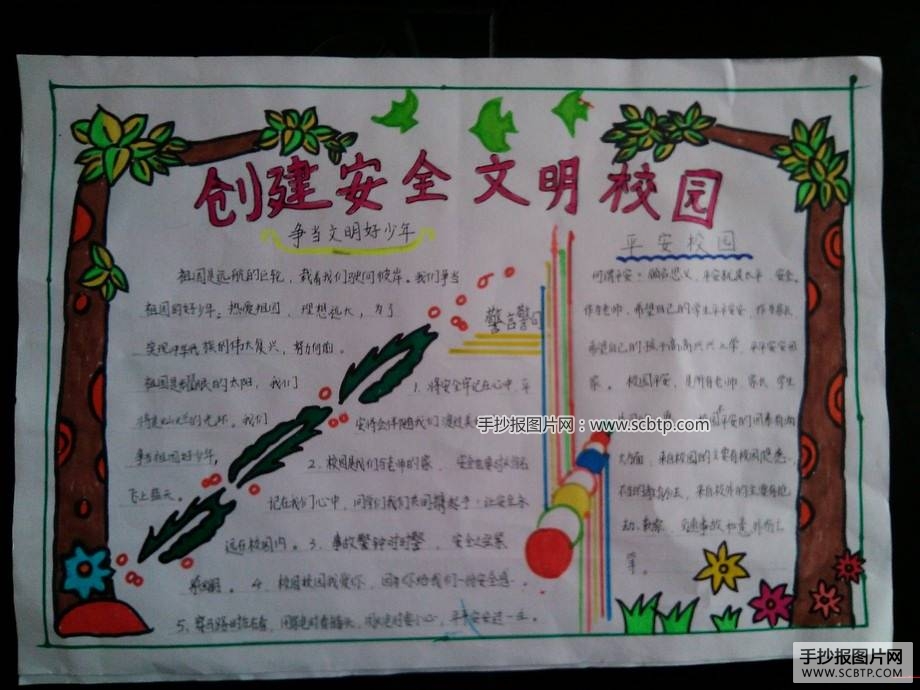 创建安全文明校园
争当文明好少年
祖国是远航的巨轮，载着我们驶向彼岸。我们争当
祖国的好少年。热爱祖国，理想远大，为了
实现中华民族的伟大复兴，努力向前。
祖国是耀眼的太阳，我们
将是灿烂的光环。我们
争当祖国好少年，
飞上蓝天。
警言警句
1、将安全牢记在心中，平
安将会伴随我们
2、校园是我们与老师的家，安全
记在我们心中，同学们我们共同携起手：让安全永
远在校园内。3、事故警钟时时鸣，安全之弦紧
4、校园校园我爱你，因为你给我们一份安全感。
平平安安过一生。
平安校园
何谓平安？顾名思义，平安就是太平、安全。
作为老师，希望自己的学生平平安安，作为家长
希望自己的孩子高高兴兴上学，平平安安回
家。校园平安，是所有老师、家长、学生
校园平安的因素有两
大方面，来自校园的主要有校园隐患、
来自校外的主要有抢
劫、勒索、交通事故和意外伤亡
等。
手抄报图片网：www.scbtp.com
手抄报图片网
WWW.SCBTP.COM